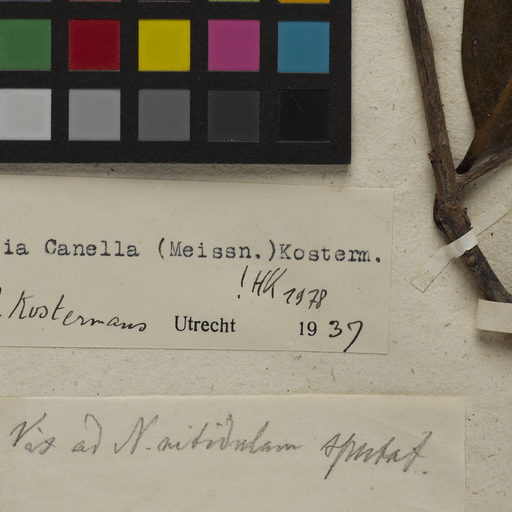 ia Canella (Meissn.)Kosterm.
! HK 1978
Kostermans Utrecht 1937
Vix ad N. nitidulam spectat.